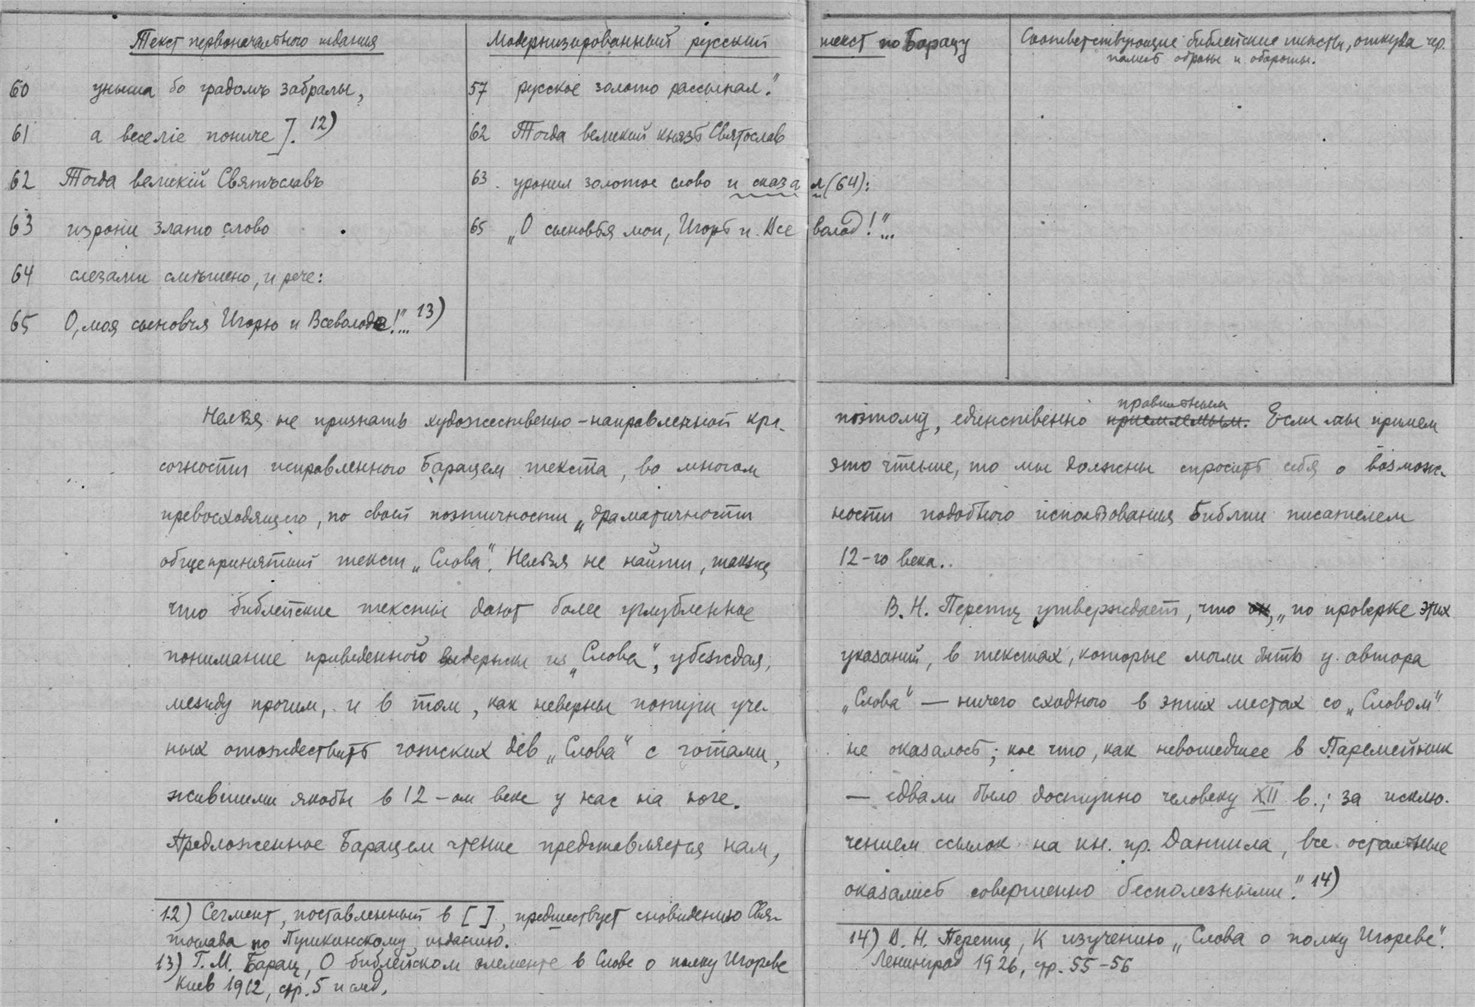 Текст первоначального издания
60 уныша бо градомъ забралы,
61 а веселіе пониче]. 12)
62 Тогда великій Святъславъ
63 изрони злато слово
64 слезами смѣшено, и рече:
65 О, моя сыновчя Игорю и Всеволоде!"... 13)
Модернизированный русский текст по Барацу
57 русское золото рассыпал."
62 Тогда великий князь Святослав
63 уронил золотое слово и сказал (64):
65 „О сыновья мои, Игорь и Всеволод!"...
Соответствующие библейские тексты, откуда чер-
пались образы и обороты.
Нельзя не признать художественно-направленной кра-
сочности исправленного Барацем текста, во многом
превосходящего, по своей поэтичности и драматичности
общепринятый текст „Слова". Нельзя не найти, также,
что библейские тексты дают более углубленное
понимание приведенной выдержки из „Слова", убеждая,
между прочим, и в том, как неверны потуги уче-
ных отождествить готских дев „Слова" с готами,
жившими якобы в 12-ом веке у нас на юге.
Предложенное Барацем чтение представляется нам,
12) Сегмент, поставленный в [ ], предшествует сновидению Свя-
тослава по Пушкинскому изданию.
13) Г. М. Барац, О библейском элементе в Слове о полку Игореве
Киев 1912, стр. 5 и след.
правильным
поэтому, единственно приемлемым. Если мы примем
это чтение, то мы должны спросить себя о возмож-
ности подобного использования Библии писателем
12-го века..
В. Н. Перетц утверждает, что „по проверке этих
указаний, в текстах, которые могли быть у автора
„Слова" — ничего сходного в этих местах со „Словом"
не оказалось; кое что, как невошедшее в Паремейник
— едвали было доступно человеку XII в.; за исклю-
чением ссылок на кн. пр. Даниила, все остальные
оказались совершенно бесполезными." 14)
14) В. Н. Перетц, К изучению „Слова о полку Игореве".
Ленинград 1926, стр. 55-56